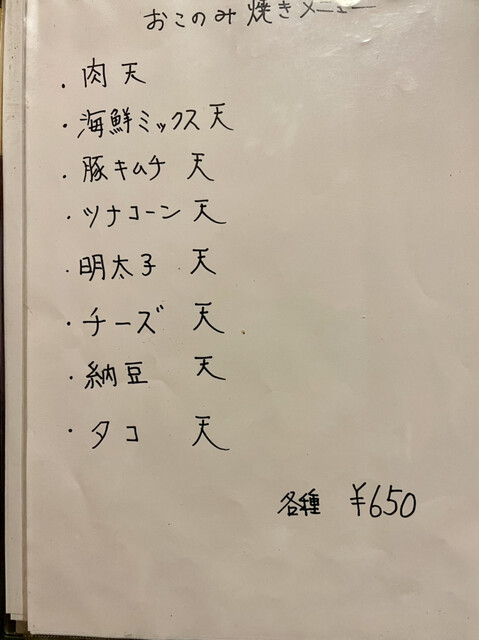 おこのみ焼きメニュー
・肉天
・海鮮ミックス天
・豚キムチ 天
・ツナコーン 天
・明太子 天
・チーズ 天
・納豆 天
・タコ 天
各種 ¥650